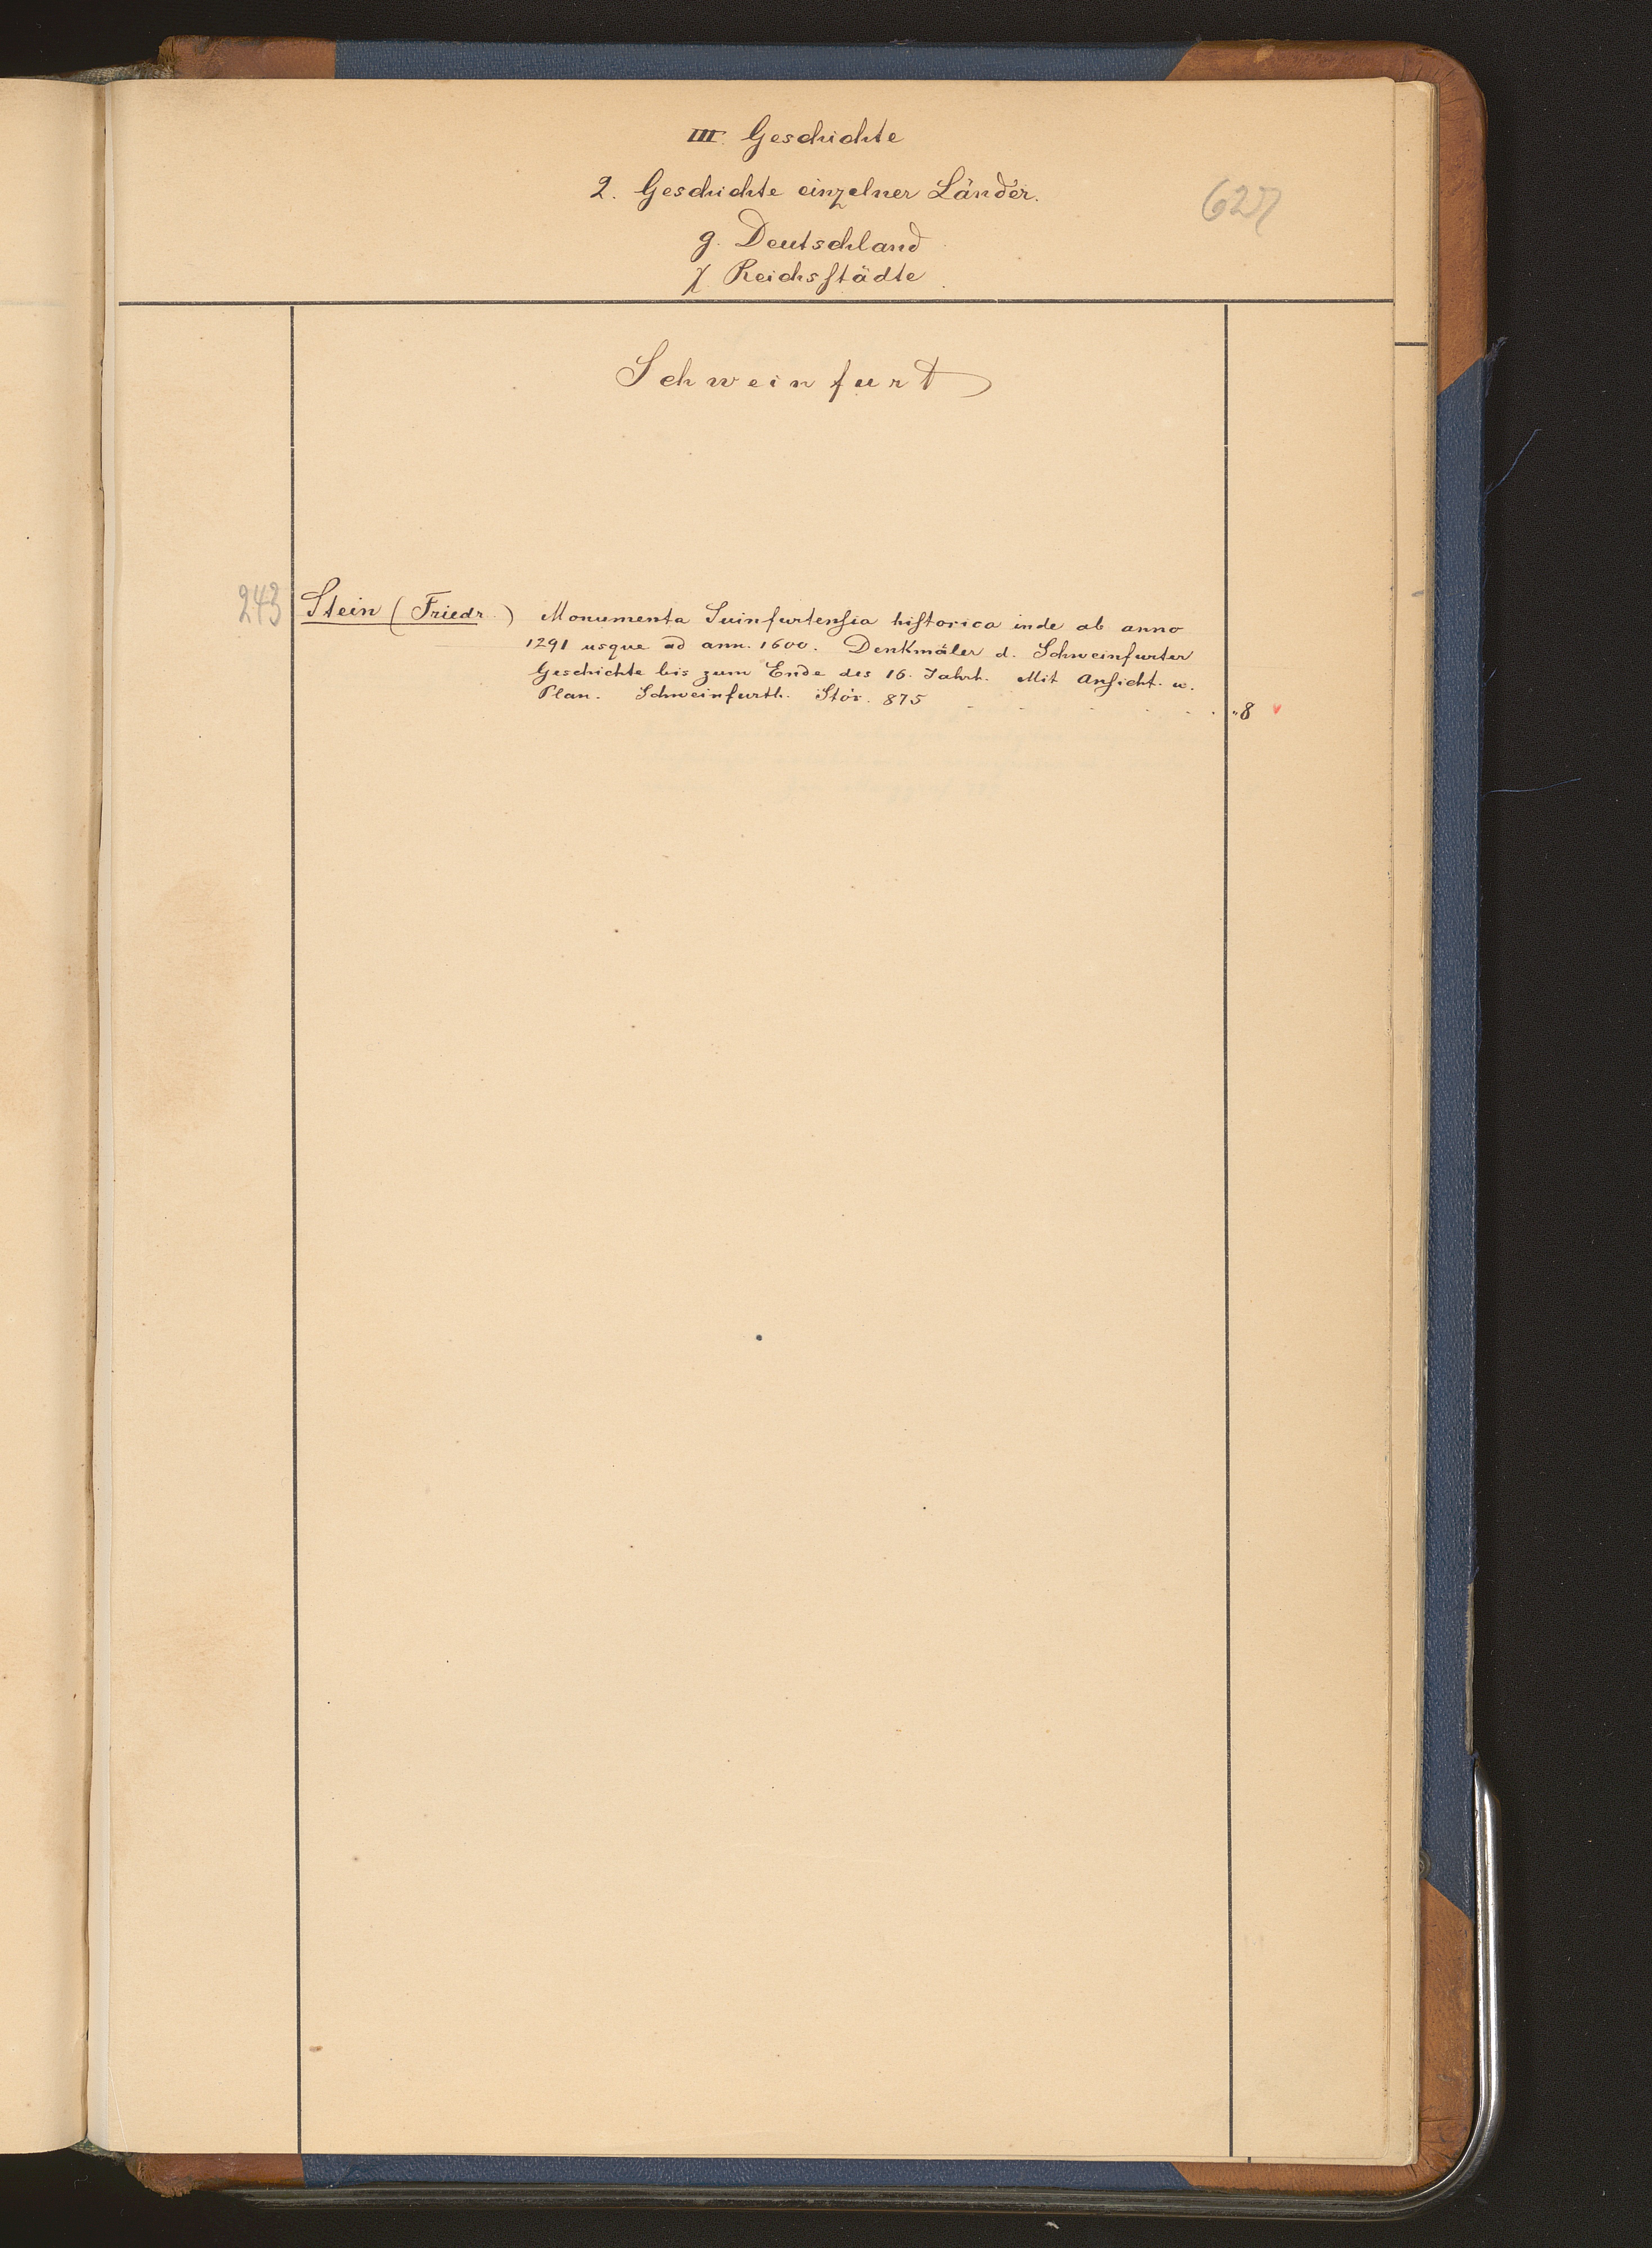 III. Geschichte
2. Geschichte einzelner Länder.
627
g. Deutschland
χ. Reichsstädte.
Schweinfurt
243
Stein (Friedr.) Monumenta Suinfurtensia historica inde ab anno
1291 usque ad ann. 1600. Denkmäler d. Schweinfurter
Geschichte bis zum Ende des 16. Jahrh. Mit Ansicht. u.
Plan. Schweinfurth. Stör. 875 . . . . . . "8 v